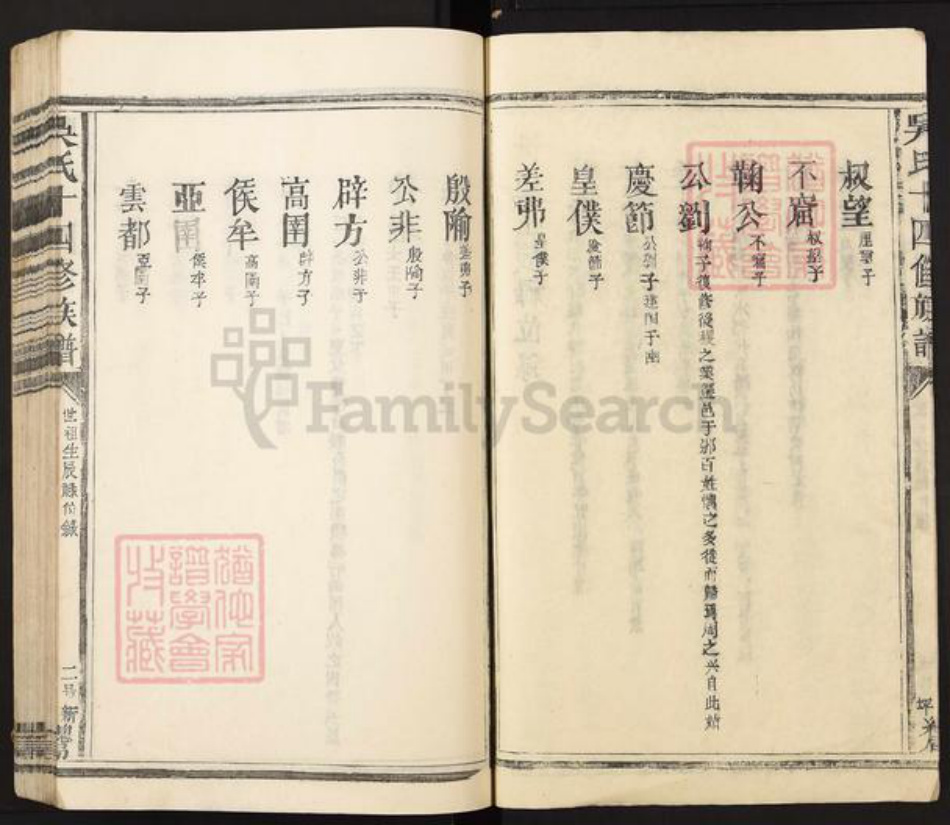 叔望 厘望子
不窋 叔望子
鞠公 不窋子
公劉 鞠子復修后稷之業遷邑于邠百姓懷之多從而歸焉周之興自此始
慶節 公劉子建國于豳
皇僕 慶節子
差弗 皇僕子
吳氏十四修族譜
殷隃 差弗子
公非 殷隃子
辟方 公非子
高圉 辟方子
侯牟 高圉子
亞圉 侯牟子
雲都 亞圉子
吳氏十四修族譜
世祖生辰祿位錄
猶他家譜學會收藏
猶他家譜學會收藏
FamilySearch